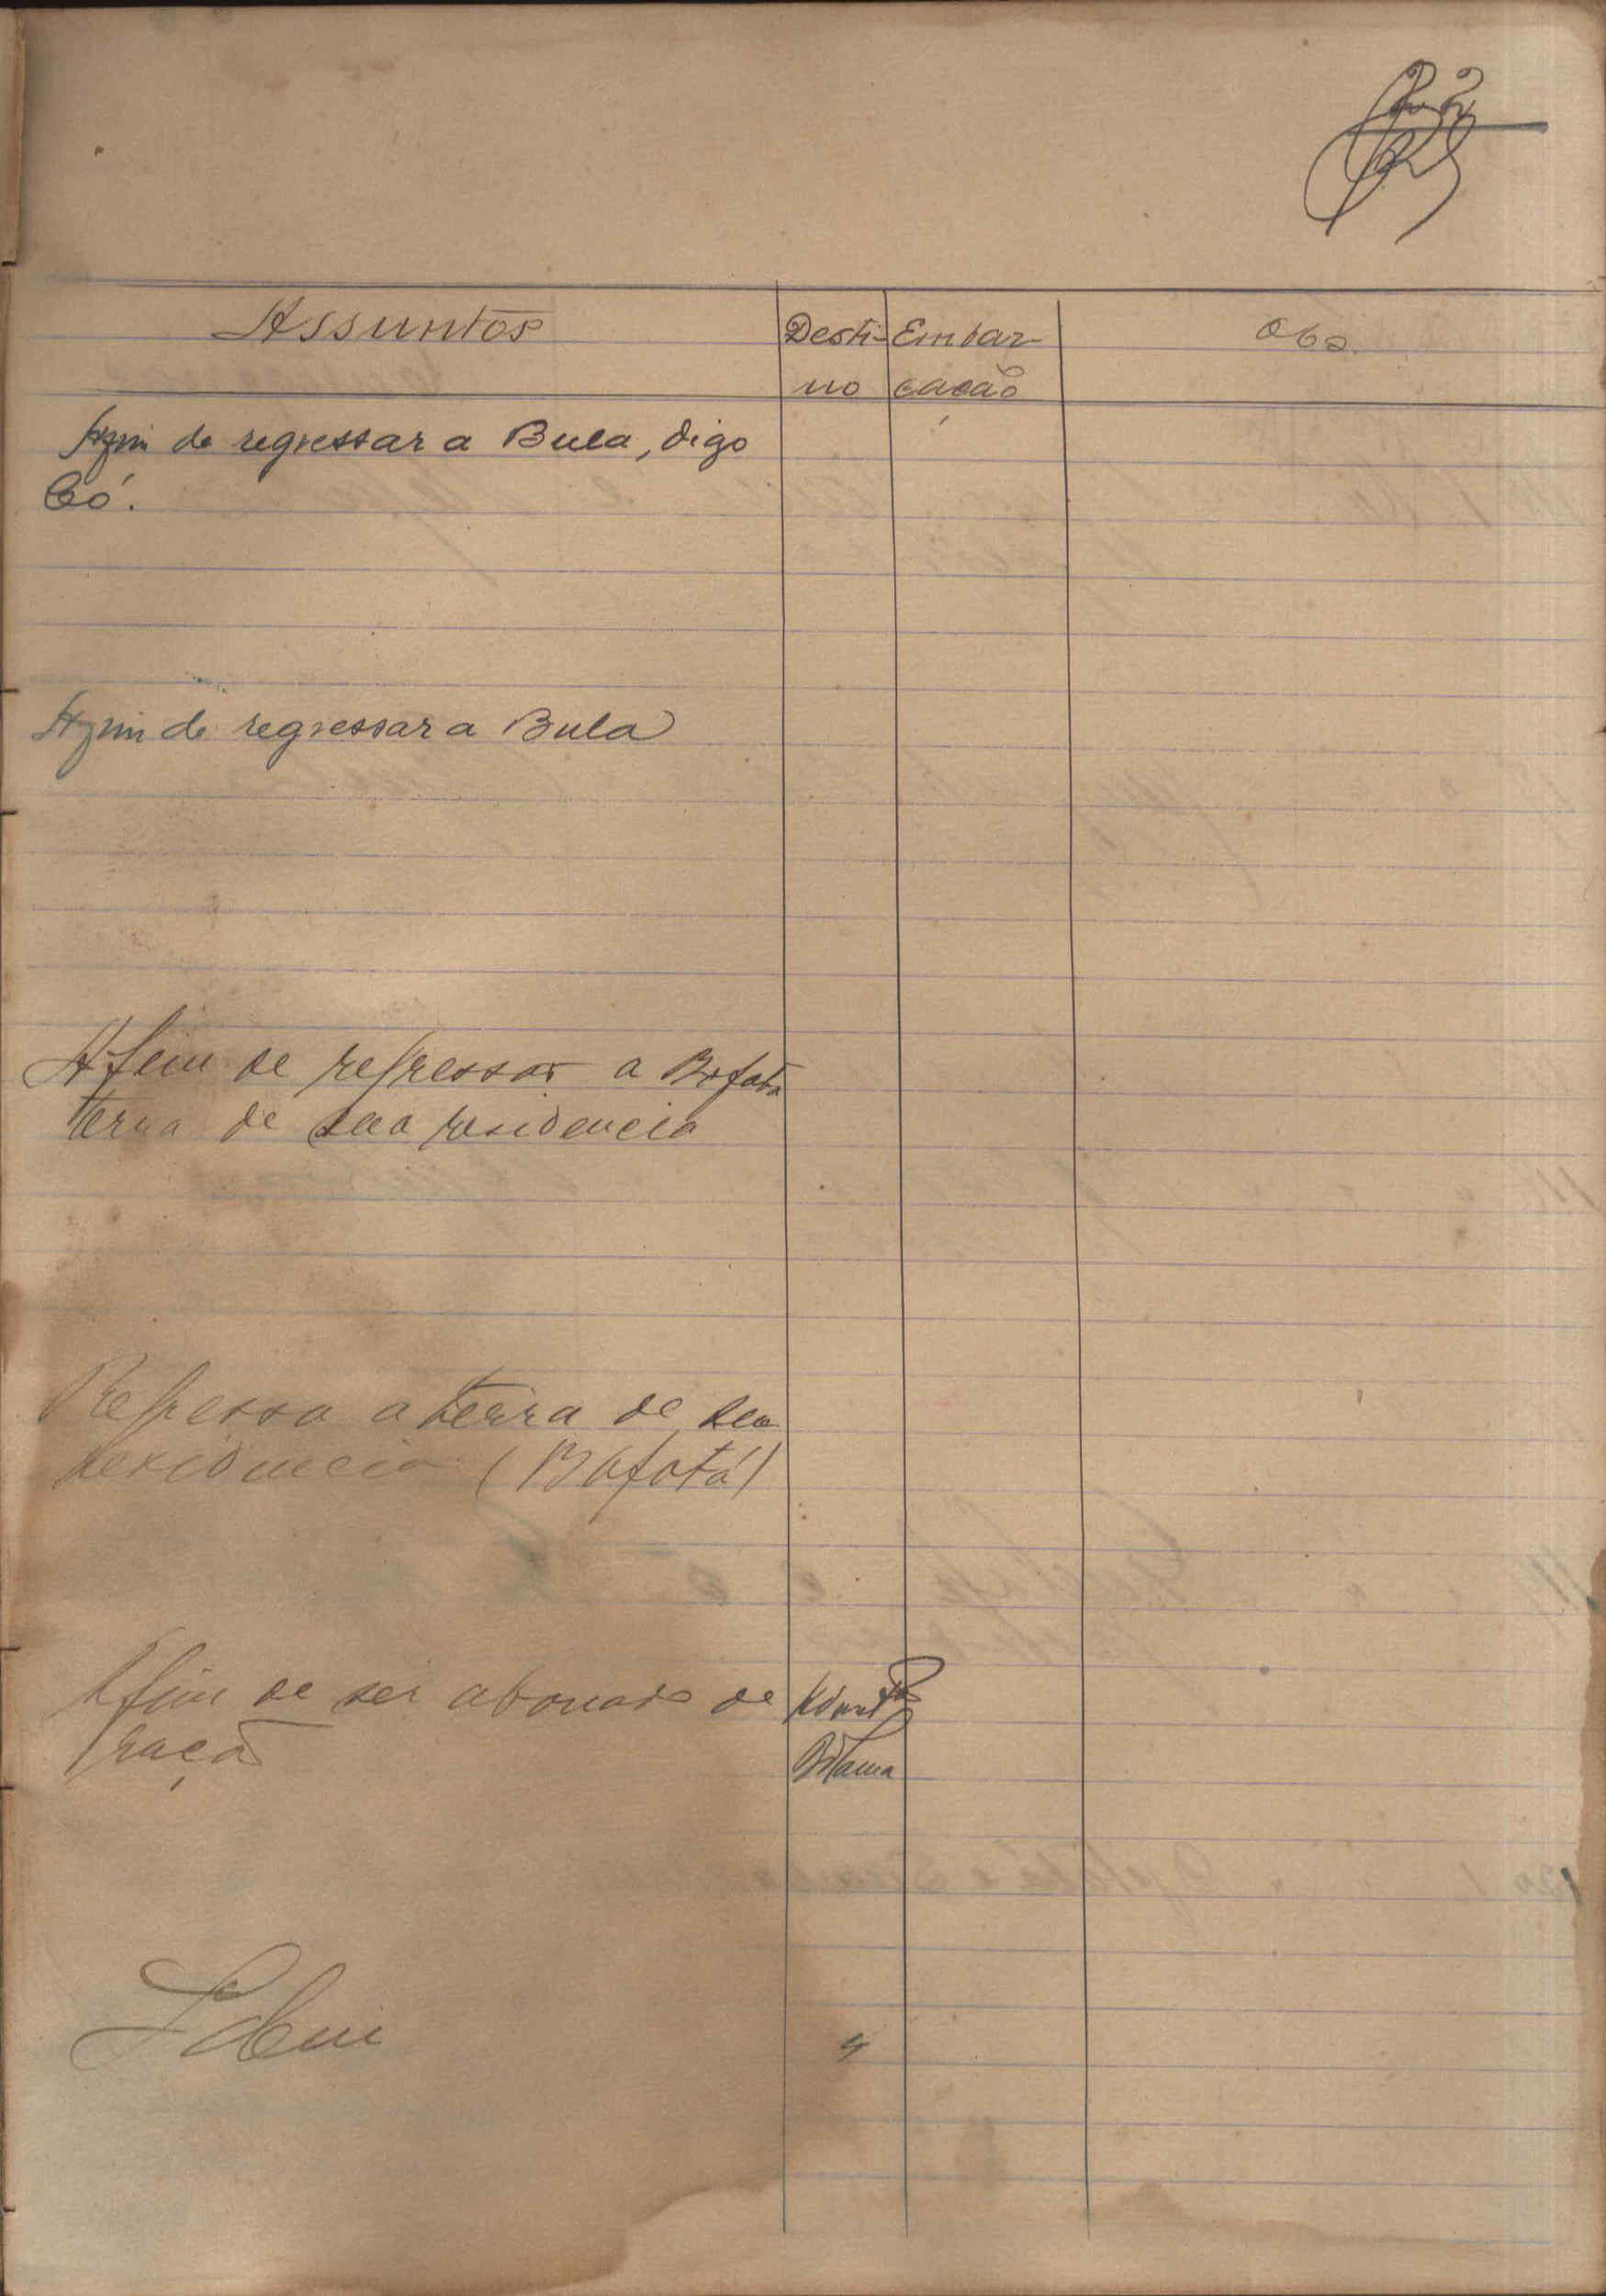 22
Assuntos
Desti-
no
Embar-
cação
Obs.
Afim de regressar a Bula, digo
Có.
Afim de regressar a Bula
Afim de regressar a Bafatá
terra de sua residencia
Regressa a terra de sua
residencia (Bafatá)
Afim de ser abonado de
ração
Bolama
Idem
"